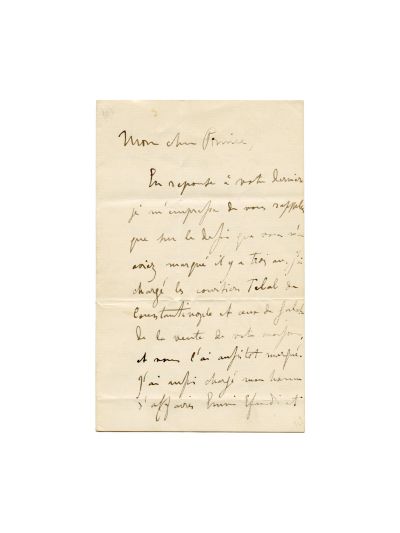 Mon cher Prince,
En reponse à votre dernier
je m'empresse de vous rappeler
que sur le desir que vous m'
aviez marqué il y a trois ans, j'ai
chargé les courtiers Telal de
Constantinople et ceux de
de la vente de votre maison,
et vous l'ai aussitot marqué.
J'ai aussi chargé mon homme
d'affaires Emin Efendi et